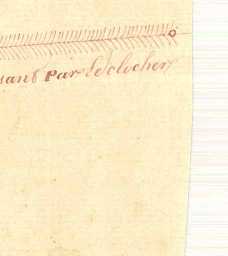 sant Par Le clocher